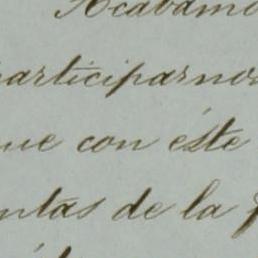 Acabamo
articiparnos
ue con éste
ntas de la